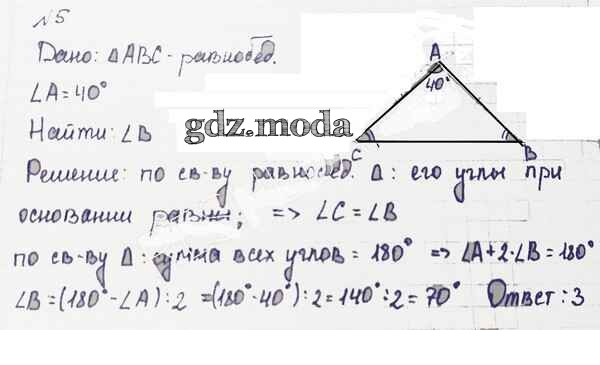 №5
Дано: ΔABC - равнобед.
∠A = 40°
Найти: ∠B
A
40°
C
B
gdz.moda
Решение: по св-ву равнобед. Δ: его углы при
основании равны; => ∠C = ∠B
по св-ву Δ: сумма всех углов = 180° => ∠A + 2·∠B = 180°
∠B = (180° - ∠A) : 2 = (180° - 40°) : 2 = 140° : 2 = 70° Ответ: 3